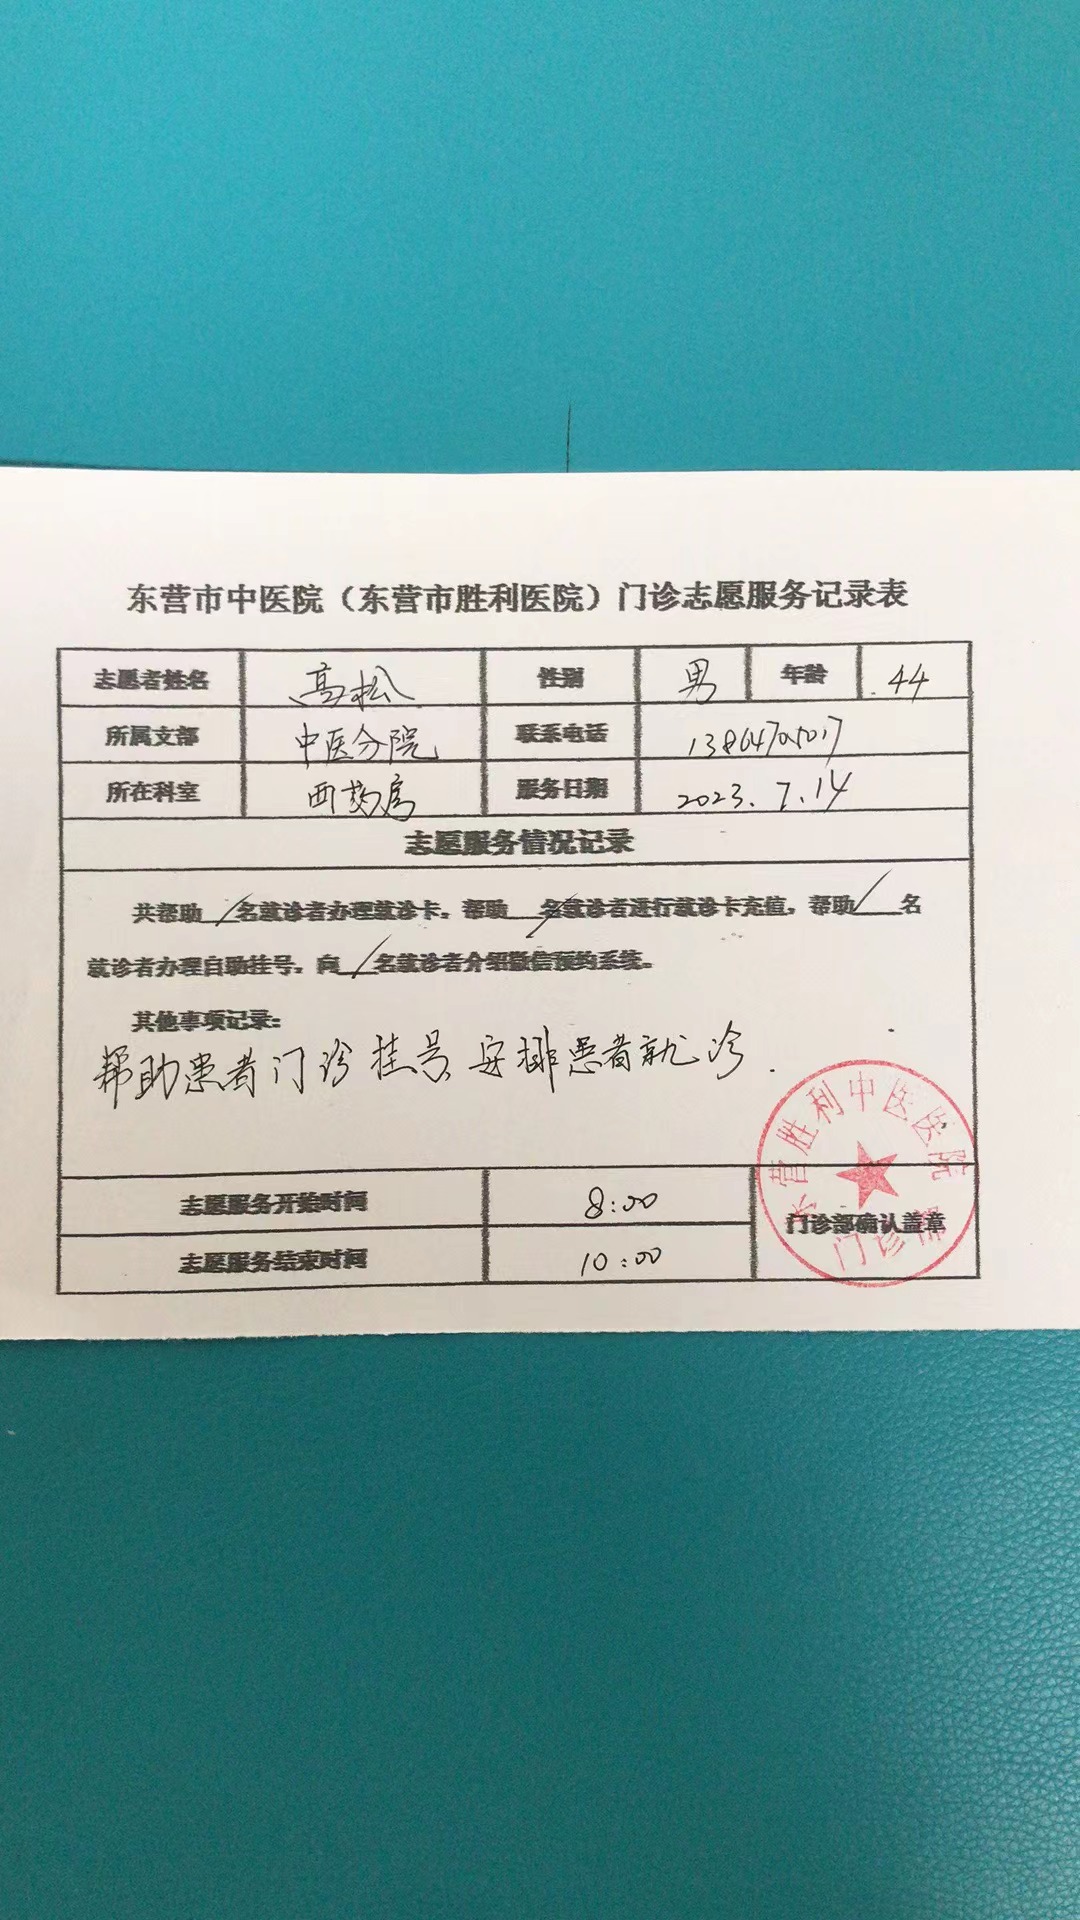 东营市中医院（东营市胜利医院）门诊志愿服务记录表
志愿者姓名 高松 性别 男 年龄 44
所属支部 中医分院 联系电话
所在科室 西药房 服务日期 2023.7.14
志愿服务情况记录
共帮助/名就诊者办理就诊卡，帮助/名就诊者进行就诊卡充值，帮助/名
就诊者办理自助挂号，向/名就诊者介绍微信预约系统。
其他事项记录：
帮助患者门诊挂号、安排患者就诊.
志愿服务开始时间 8:00
门诊部确认盖章
志愿服务结束时间 10:00
东营胜利中医医院
门诊部